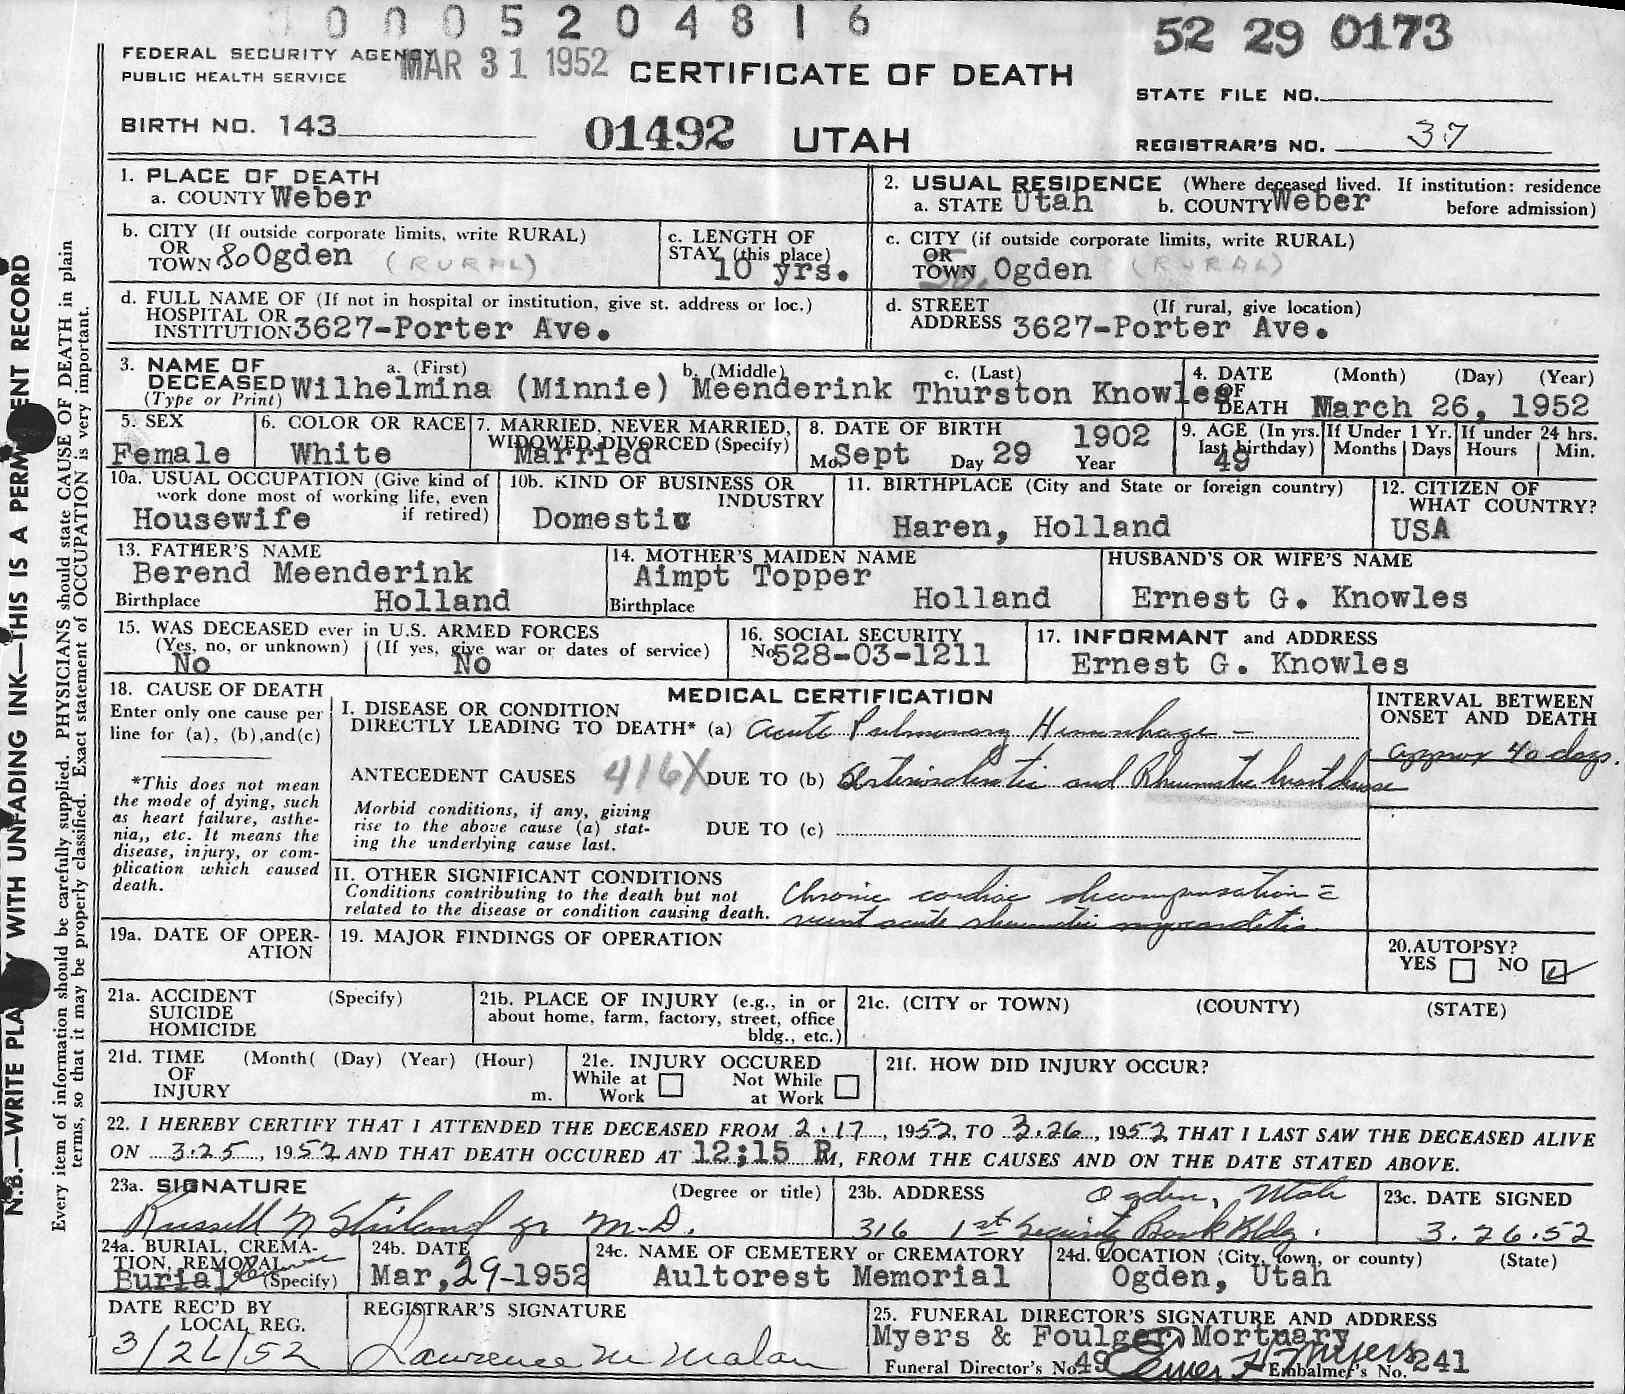 0005204816
52 29 0173
FEDERAL SECURITY AGENCY
PUBLIC HEALTH SERVICE
MAR 31 1952
CERTIFICATE OF DEATH
STATE FILE NO.
BIRTH NO. 143
01492 UTAH
REGISTRAR'S NO. 37
1. PLACE OF DEATH
a. COUNTY Weber
2. USUAL RESIDENCE (Where deceased lived. If institution: residence before admission)
a. STATE Utah b. COUNTY Weber
b. CITY (If outside corporate limits, write RURAL)
OR
TOWN 80 Ogden (RURAL)
c. LENGTH OF
STAY (this place)
10 yrs.
c. CITY (if outside corporate limits, write RURAL)
OR
TOWN Ogden (RURAL)
d. FULL NAME OF (If not in hospital or institution, give st. address or loc.)
HOSPITAL OR
INSTITUTION 3627-Porter Ave.
d. STREET (If rural, give location)
ADDRESS 3627-Porter Ave.
3. NAME OF a. (First) b. (Middle) c. (Last)
DECEASED Wilhelmina (Minnie) Meenderink Thurston Knowles
(Type or Print)
4. DATE (Month) (Day) (Year)
OF
DEATH March 26, 1952
5. SEX
Female
6. COLOR OR RACE
White
7. MARRIED, NEVER MARRIED,
WIDOWED, DIVORCED (Specify)
Married
8. DATE OF BIRTH 1902
Mo. Sept Day 29 Year
9. AGE (In yrs. last birthday)
49
If Under 1 Yr.
Months Days
If under 24 hrs.
Hours Min.
10a. USUAL OCCUPATION (Give kind of
work done most of working life, even
if retired)
Housewife
10b. KIND OF BUSINESS OR
INDUSTRY
Domestic
11. BIRTHPLACE (City and State or foreign country)
Haren, Holland
12. CITIZEN OF
WHAT COUNTRY?
USA
13. FATHER'S NAME
Berend Meenderink
Birthplace Holland
14. MOTHER'S MAIDEN NAME
Aimpt Topper
Birthplace Holland
HUSBAND'S OR WIFE'S NAME
Ernest G. Knowles
15. WAS DECEASED ever in U.S. ARMED FORCES
(Yes, no, or unknown) (If yes, give war or dates of service)
No No
16. SOCIAL SECURITY
No. 528-03-1211
17. INFORMANT and ADDRESS
Ernest G. Knowles
18. CAUSE OF DEATH
Enter only one cause per
line for (a), (b), and (c)
*This does not mean
the mode of dying, such
as heart failure, asthe-
nia,, etc. It means the
disease, injury, or com-
plication which caused
death.
MEDICAL CERTIFICATION
I. DISEASE OR CONDITION
DIRECTLY LEADING TO DEATH* (a) Acute Pulmonary Hemorrhage –
ANTECEDENT CAUSES 416X DUE TO (b) Arteriosclerotic and Rheumatic heart disease
Morbid conditions, if any, giving
rise to the above cause (a) stat-
ing the underlying cause last.
DUE TO (c)
INTERVAL BETWEEN
ONSET AND DEATH
approx 40 days.
II. OTHER SIGNIFICANT CONDITIONS
Conditions contributing to the death but not
related to the disease or condition causing death.
Chronic cardiac decompensation c̄
recent acute rheumatic myocarditis
19a. DATE OF OPER-
ATION
19. MAJOR FINDINGS OF OPERATION
20. AUTOPSY?
YES NO ✓
21a. ACCIDENT (Specify)
SUICIDE
HOMICIDE
21b. PLACE OF INJURY (e.g., in or
about home, farm, factory, street, office
bldg., etc.)
21c. (CITY or TOWN) (COUNTY) (STATE)
21d. TIME (Month( (Day) (Year) (Hour)
OF
INJURY m.
21e. INJURY OCCURED
While at Work Not While at Work
21f. HOW DID INJURY OCCUR?
22. I HEREBY CERTIFY THAT I ATTENDED THE DECEASED FROM 2.17, 1952, TO 3.26, 1952 THAT I LAST SAW THE DECEASED ALIVE
ON 3.25, 1952 AND THAT DEATH OCCURED AT 12:15 P.M, FROM THE CAUSES AND ON THE DATE STATED ABOVE.
23a. SIGNATURE (Degree or title)
Russell N jr M.D.
23b. ADDRESS Ogden, Utah
316 1st Security Bank Bldg.
23c. DATE SIGNED
3.26.52
24a. BURIAL, CREMA-
TION, REMOVAL
Burial (Specify)
24b. DATE
Mar, 29-1952
24c. NAME OF CEMETERY or CREMATORY
Aultorest Memorial
24d. LOCATION (City, town, or county) (State)
Ogden, Utah
DATE REC'D BY
LOCAL REG.
3/26/52
REGISTRAR'S SIGNATURE
Lawrence M Malan
25. FUNERAL DIRECTOR'S SIGNATURE AND ADDRESS
Myers & Foulger Mortuary
Funeral Director's No. 49 Elmer H Myers Embalmer's No. 241
N.B.—WRITE PLA Y WITH UNFADING INK—THIS IS A PERM ENT RECORD
Every item of information should be carefully supplied. PHYSICIANS should state CAUSE OF DEATH in plain
terms, so that it may be properly classified. Exact statement of OCCUPATION is very important.